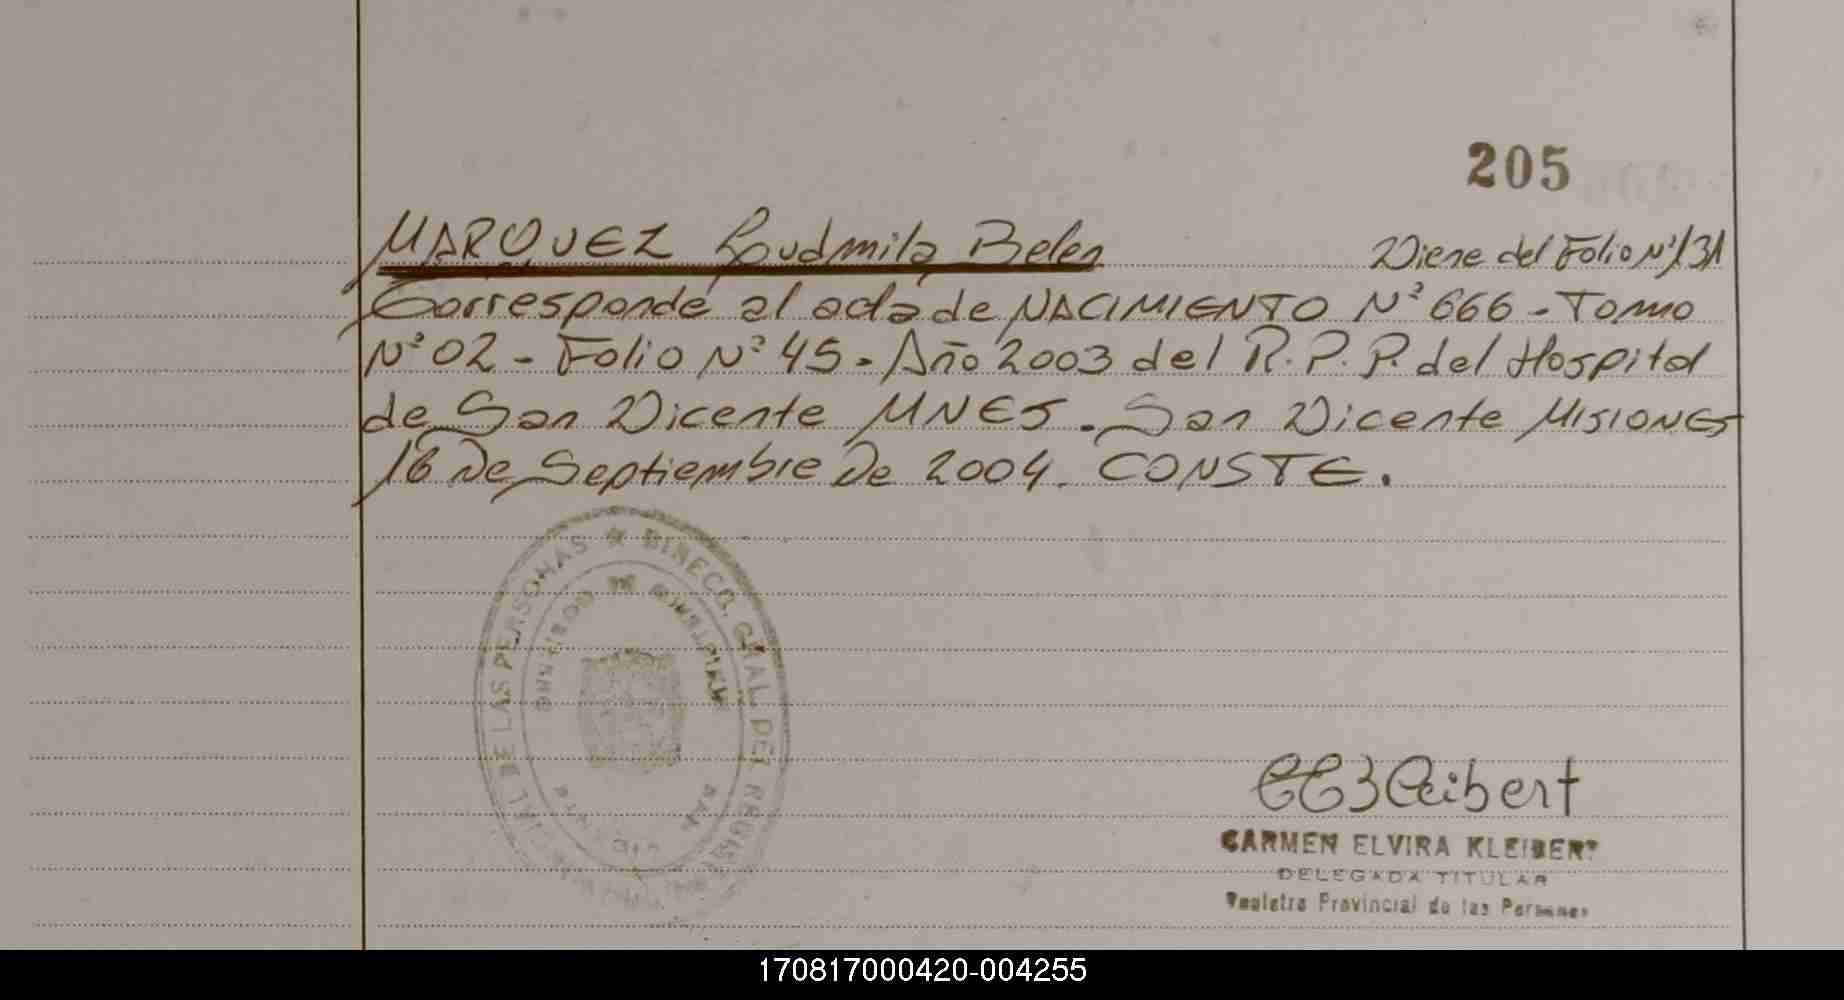 205
MARQUEZ Ludmila Belen Viene del Folio Nº 131
Corresponde al acta de NACIMIENTO Nº 666 - Tomo
Nº 02 - Folio Nº 45 - Año 2003 del R. P. P. del Hospital
de San Vicente MNES. San Vicente MISIONES
16 De Septiembre De 2004. CONSTE.
DE LAS PERSONAS ★ DIRECC. GRAL. DEL
GOBIERNO
CARMEN ELVIRA KLEIBERT
DELEGADA TITULAR
Registro Provincial de las Personas
170817000420-004255